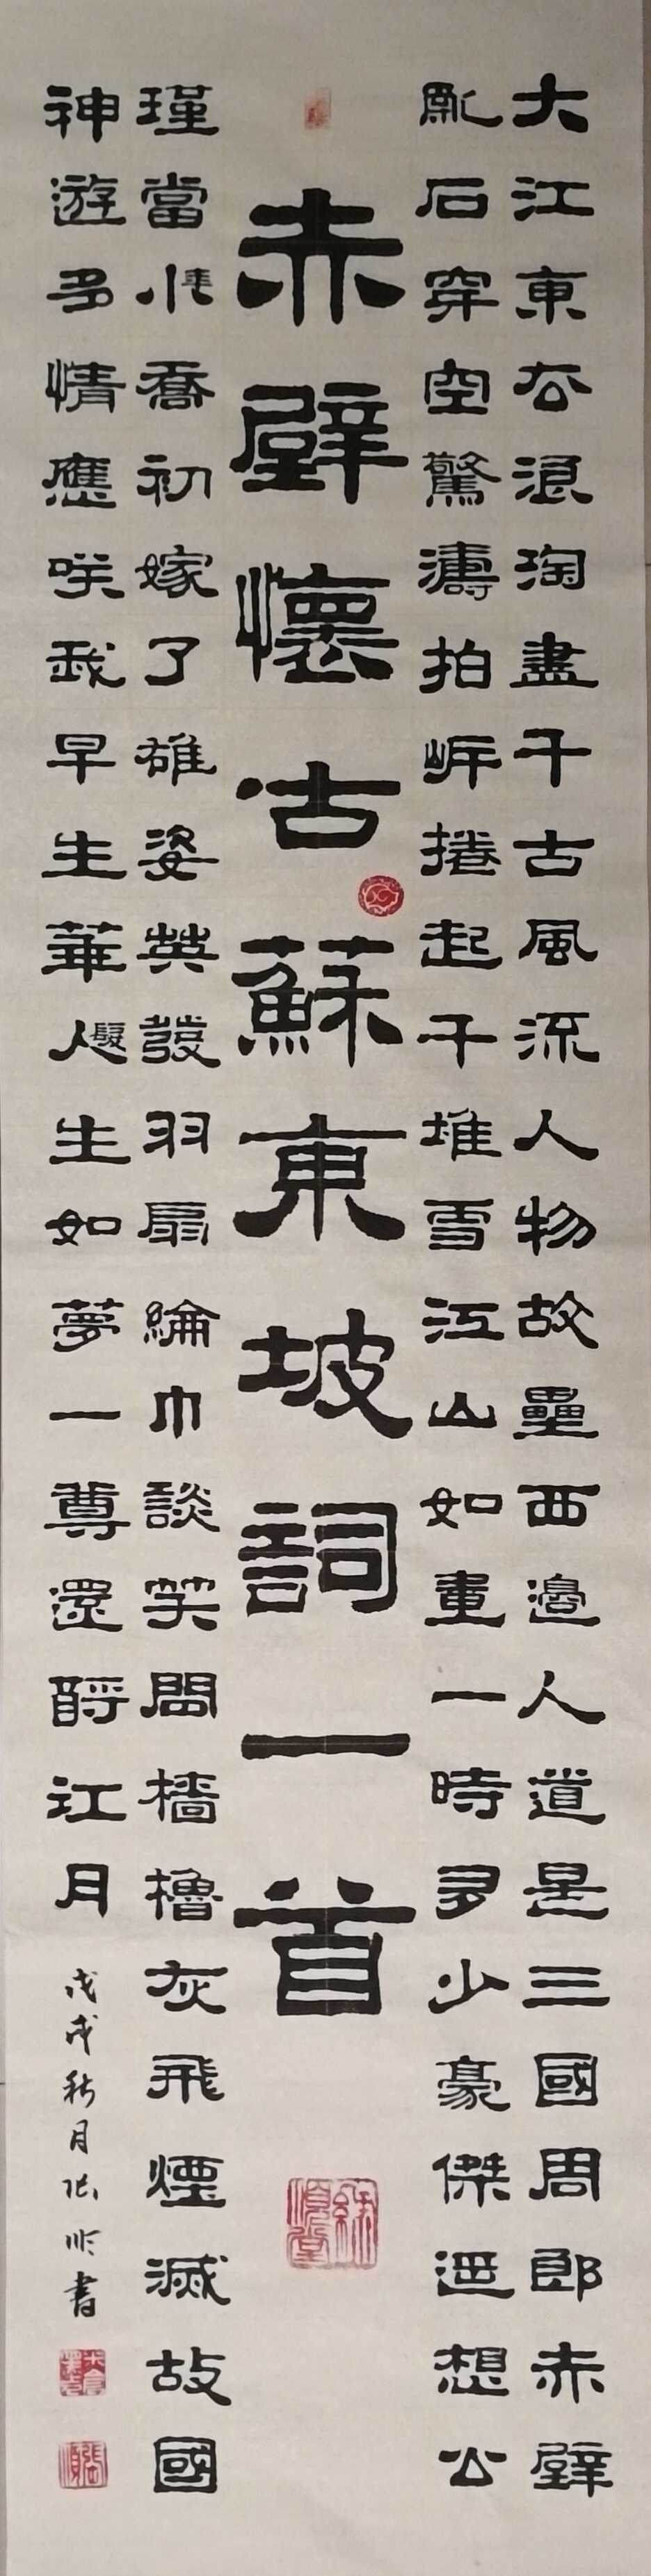 大江東去浪淘盡千古風流人物故壘西邊人道是三國周郎赤壁
亂石穿空驚濤拍岸捲起千堆雪江山如畫一時多少豪傑遥想公
赤壁懷古蘇東坡詞一首
瑾當年小喬初嫁了雄姿英發羽扇綸巾談笑間檣櫓灰飛煙滅故國
神遊多情應咲我早生華髮人生如夢一尊還酹江月
戊戌秋月張順書